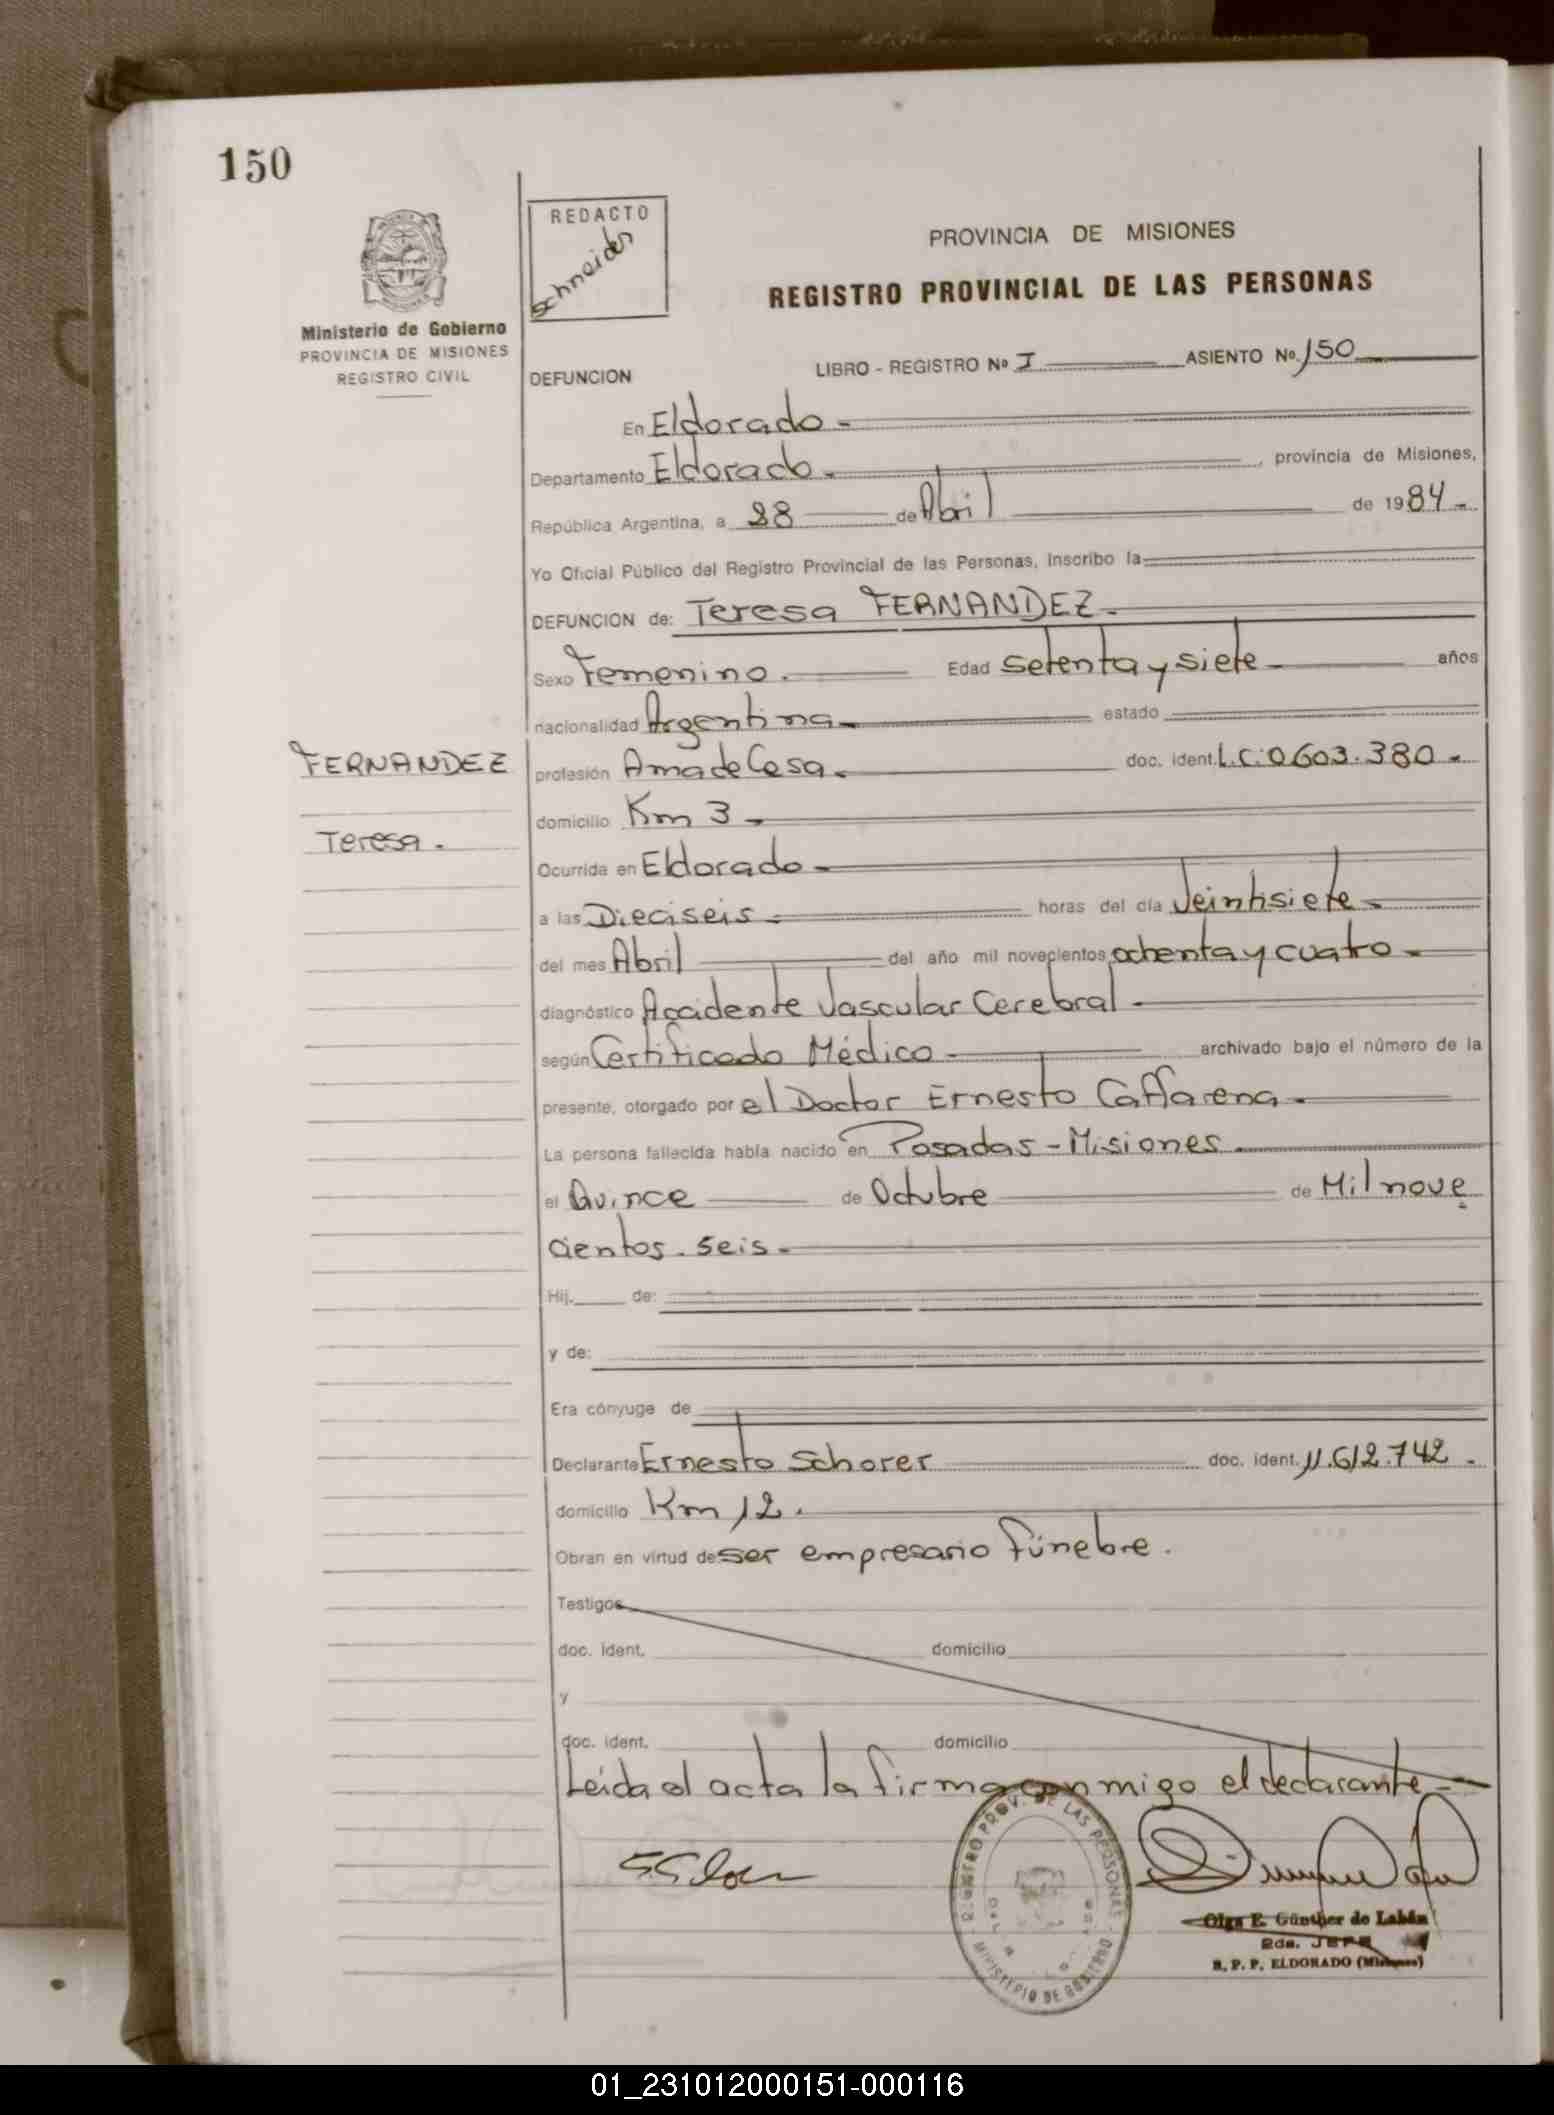 150
REDACTO
Schneider
Ministerio de Gobierno
PROVINCIA DE MISIONES
REGISTRO CIVIL
PROVINCIA DE MISIONES
REGISTRO PROVINCIAL DE LAS PERSONAS
LIBRO - REGISTRO Nº I ASIENTO Nº. 150
DEFUNCION
En Eldorado.-
Departamento Eldorado.- , provincia de Misiones,
República Argentina, a 28 de Abril de 1984.-
Yo Oficial Público del Registro Provincial de las Personas, inscribo la
DEFUNCION de: Teresa FERNANDEZ.-
Sexo Femenino.- Edad setenta y siete años
nacionalidad Argentina.- estado
FERNANDEZ
Teresa.
profesión Ama de Casa.- doc. ident. L.C. 0603.380.-
domicilio Km 3.-
Ocurrida en Eldorado.-
a las Dieciseis.- horas del día Veintisiete.-
del mes Abril del año mil novecientos ochenta y cuatro.-
diagnóstico Accidente Vascular Cerebral.-
según Certificado Médico.- archivado bajo el número de la
presente, otorgado por el Doctor Ernesto Caffarena.-
La persona fallecida había nacido en Posadas - Misiones.-
el Quince de Octubre de Mil nove
cientos seis.-
Hij. de:
y de:
Era cónyuge de
Declarante Ernesto Schorer doc. ident. 11.612.742.-
domicilio Km 12.
Obran en virtud de ser empresario fúnebre.
Testigos
doc. ident. domicilio
y
doc. ident. domicilio
Leída el acta la firma conmigo el declarante.-
REGISTRO PROV. DE LAS PERSONAS
MINISTERIO DE GOBIERNO
Olga E. Günther de Labán
2da. JEFE
R. P. P. ELDORADO (Misiones)
01_231012000151-000116